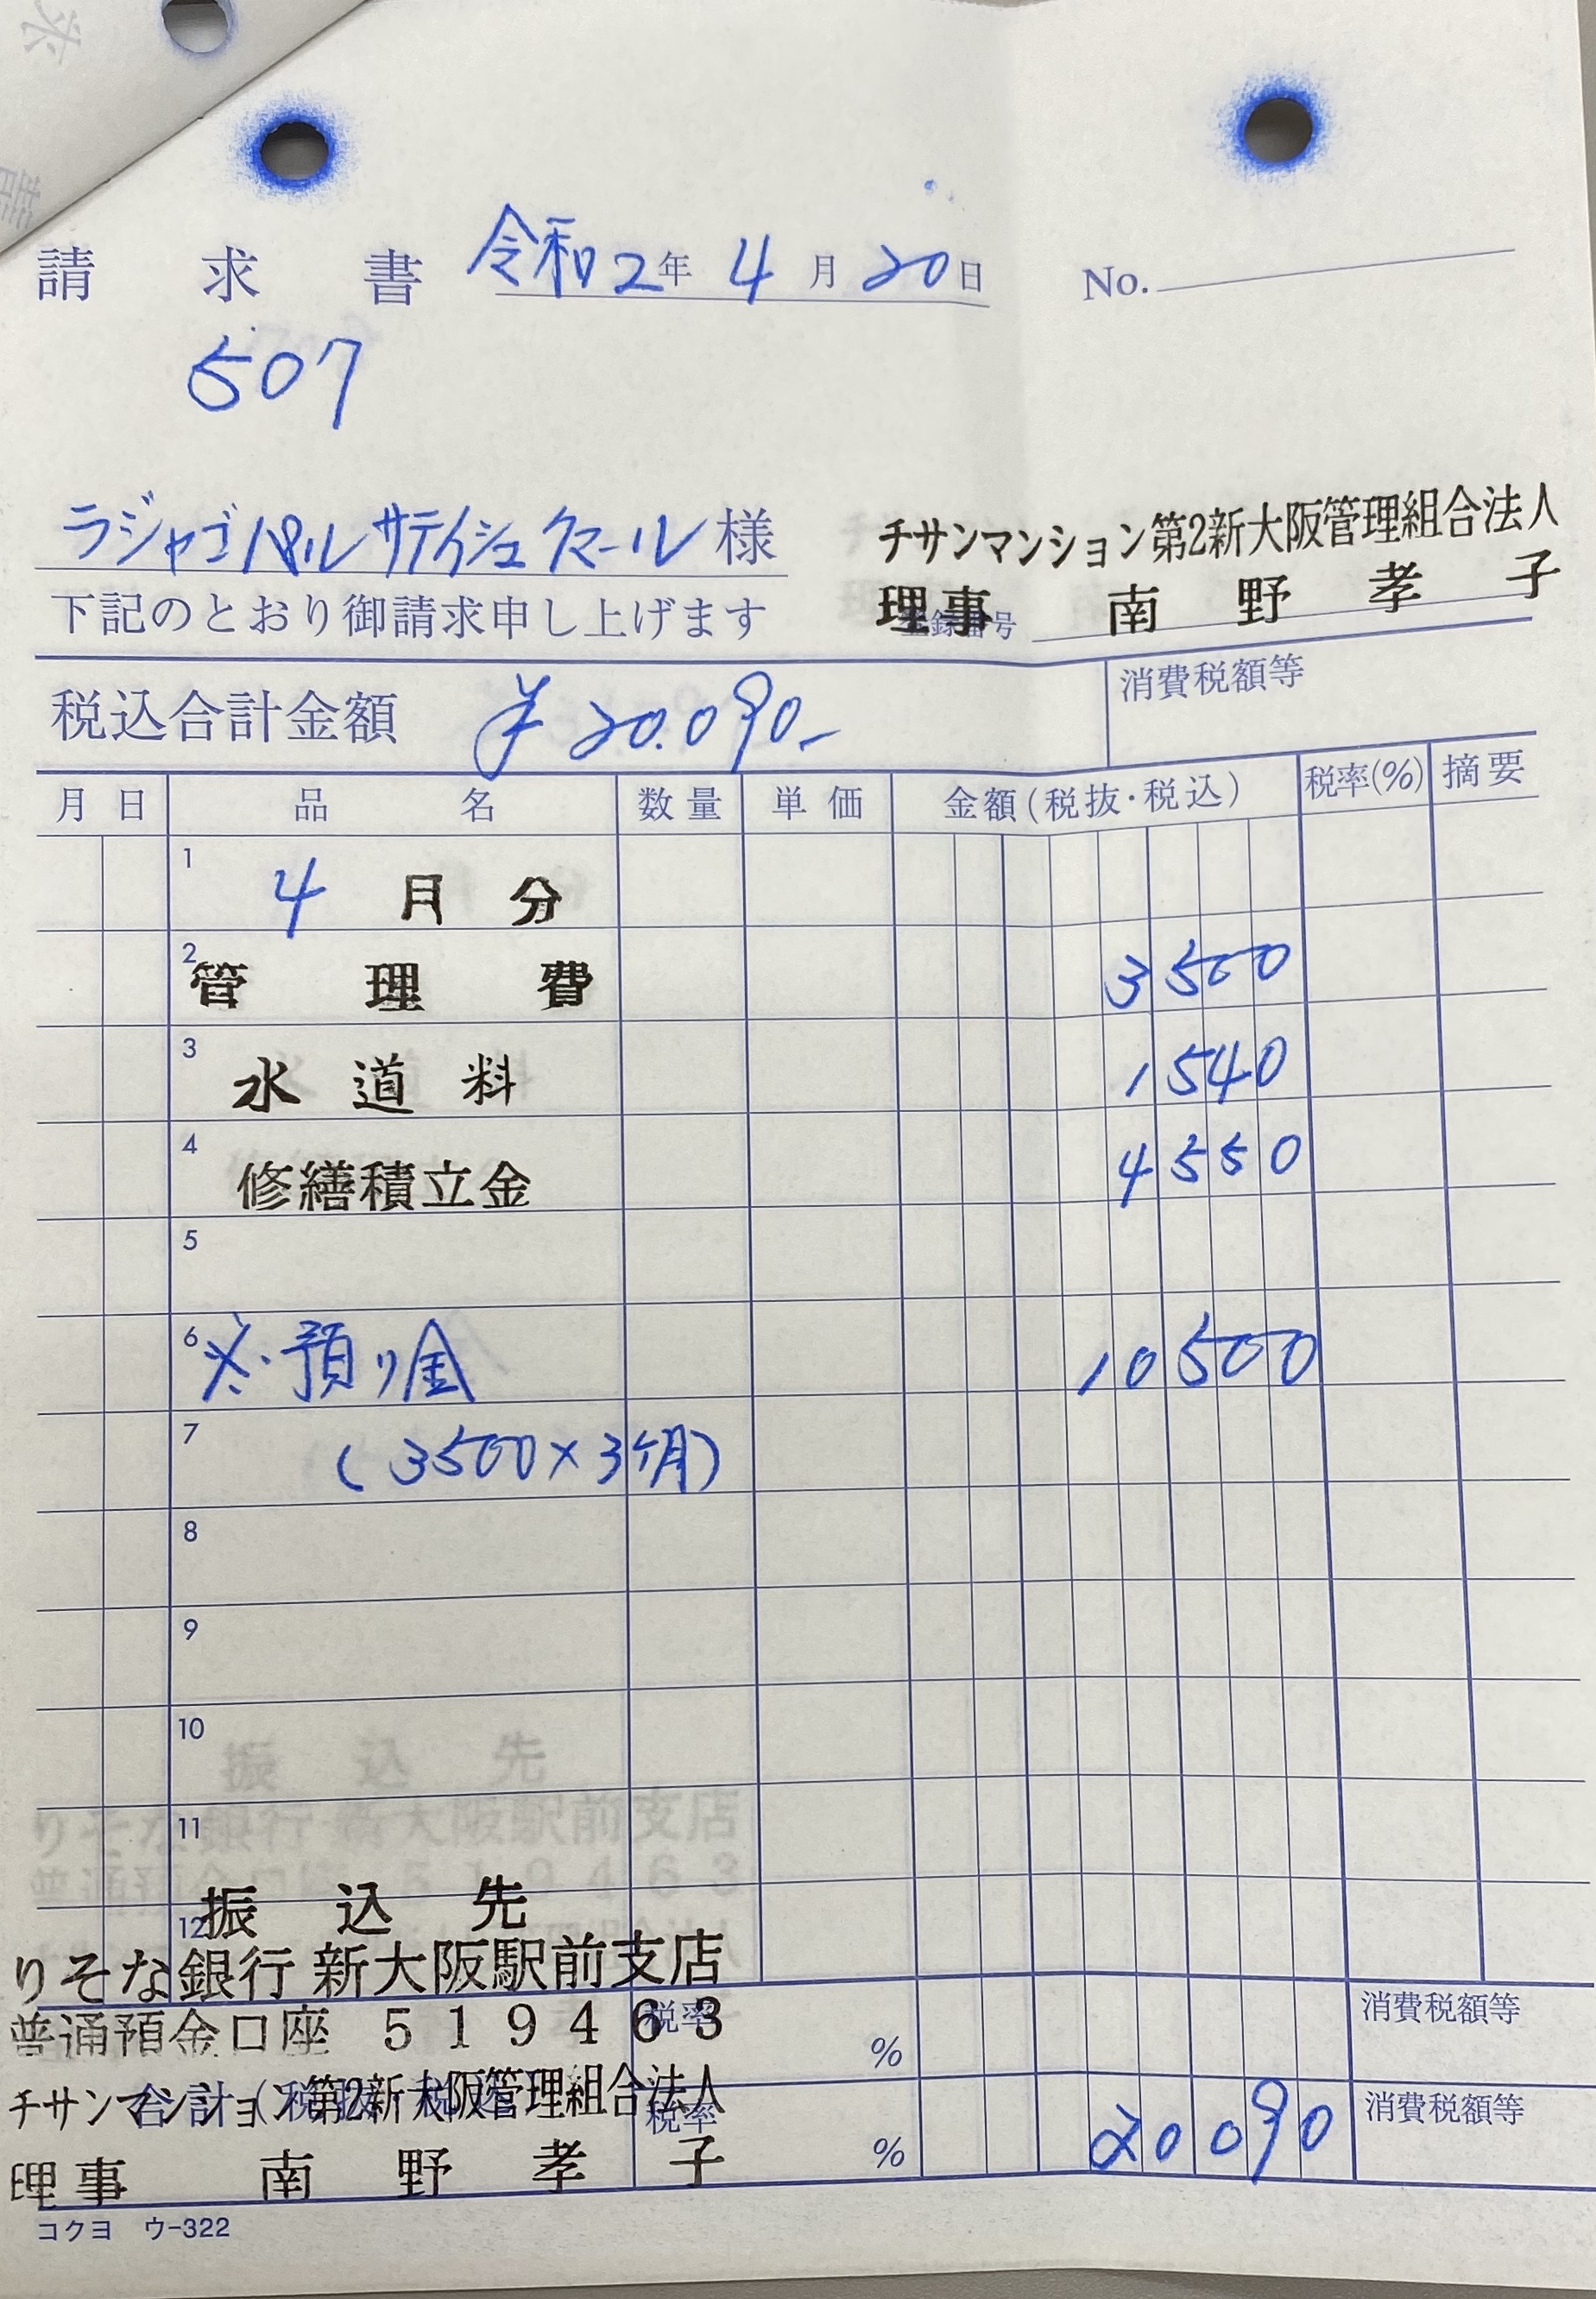 請求書 令和2年4月20日 No.
507
ラジャゴパルサティシュクマール様
チサンマンション第2新大阪管理組合法人
理事 南野孝子
下記のとおり御請求申し上げます
税込合計金額 ¥20.090-
消費税額等
月 日 品名 数量 単価 金額(税抜・税込) 税率(%) 摘要
1 4月分
2 管理費 3500
3 水道料 1540
4 修繕積立金 4550
5
6 ※・預り金 10500
7 (3500×3ヶ月)
8
9
10
11
12
振込先
りそな銀行 新大阪駅前支店
普通預金口座 519463
税率 % 消費税額等
チサンマンション第2新大阪管理組合法人
合計(税抜・税込) 税率 % 20090 消費税額等
理事 南野孝子
コクヨ ウ-322